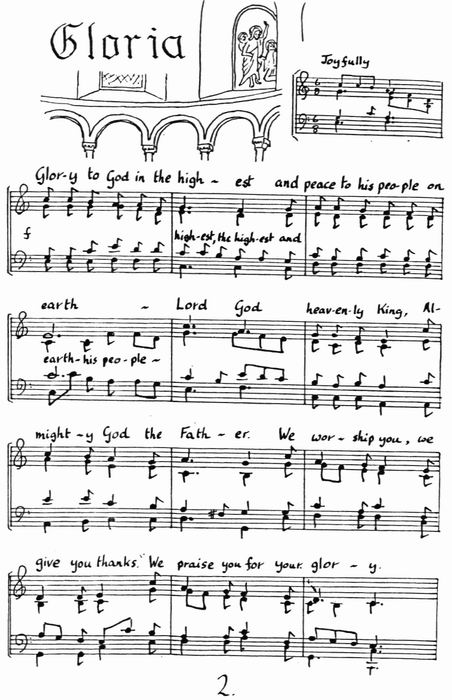 Gloria
Joyfully
Glor-y to God in the high - est and peace to his peo-ple on
f
high-est, the high-est and
earth - Lord God heav-en-ly King, Al-
earth-his peo-ple -
might-y God the Fath-er. We wor-ship you, we
give you thanks. We praise you for your glor-y.
2.